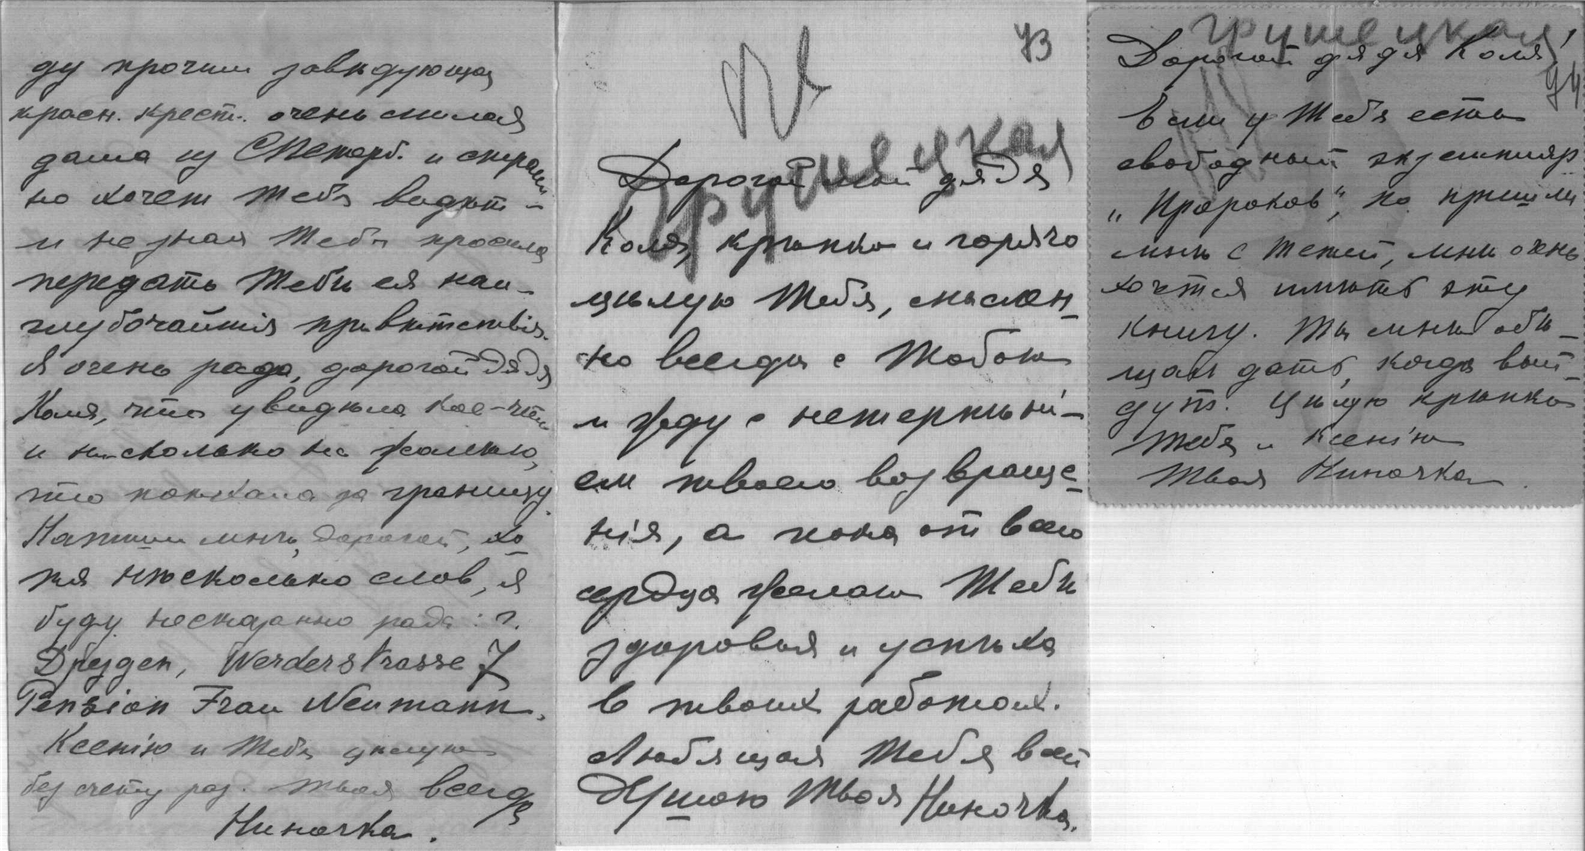 ду прочим завѣдующая
красн. крест. очень милая
дама из СПетерб. и страш
но хочет тебя видѣть –
и не зная Тебя просила
передать Тебѣ ея наи-
глубочайшія привѣтствія.
Я очень рада, дорогой дядя
Коля, что увидѣла кое-что
и нисколько не жалѣю,
что поѣхала за границу.
Напиши мнѣ, дорогой, хо-
тя нѣсколько слов, я
буду несказанно рада: г.
Дрезден, Werderstrasse 7
Pension Frau Neumann.
Ксенію и Тебя цѣлую
без счету раз. Твоя всегда
Ниночка.
73
Грушецкая
Дорогой мой дядя
Коля, крѣпко и горячо
цѣлую Тебя, мыслен-
но всегда с Тобою
и жду с нетерпѣні-
ем твоего возвраще-
нія, а пока от всего
сердца желаю Тебѣ
здоровья и успѣха
в твоих работах.
Любящая Тебя всей
душою Твоя Ниночка.
Грушецкая
74
Дорогой дядя Коля!
Если у Тебя есть
свободный экземпляр
„Пророков", то пришли
мнѣ с Тетей, мнѣ очень
хочется имѣть эту
книгу. Ты мнѣ обѣ-
щал дать, когда вый-
дут. Цѣлую крѣпко
Тебя и Ксенію
Твоя Ниночка.